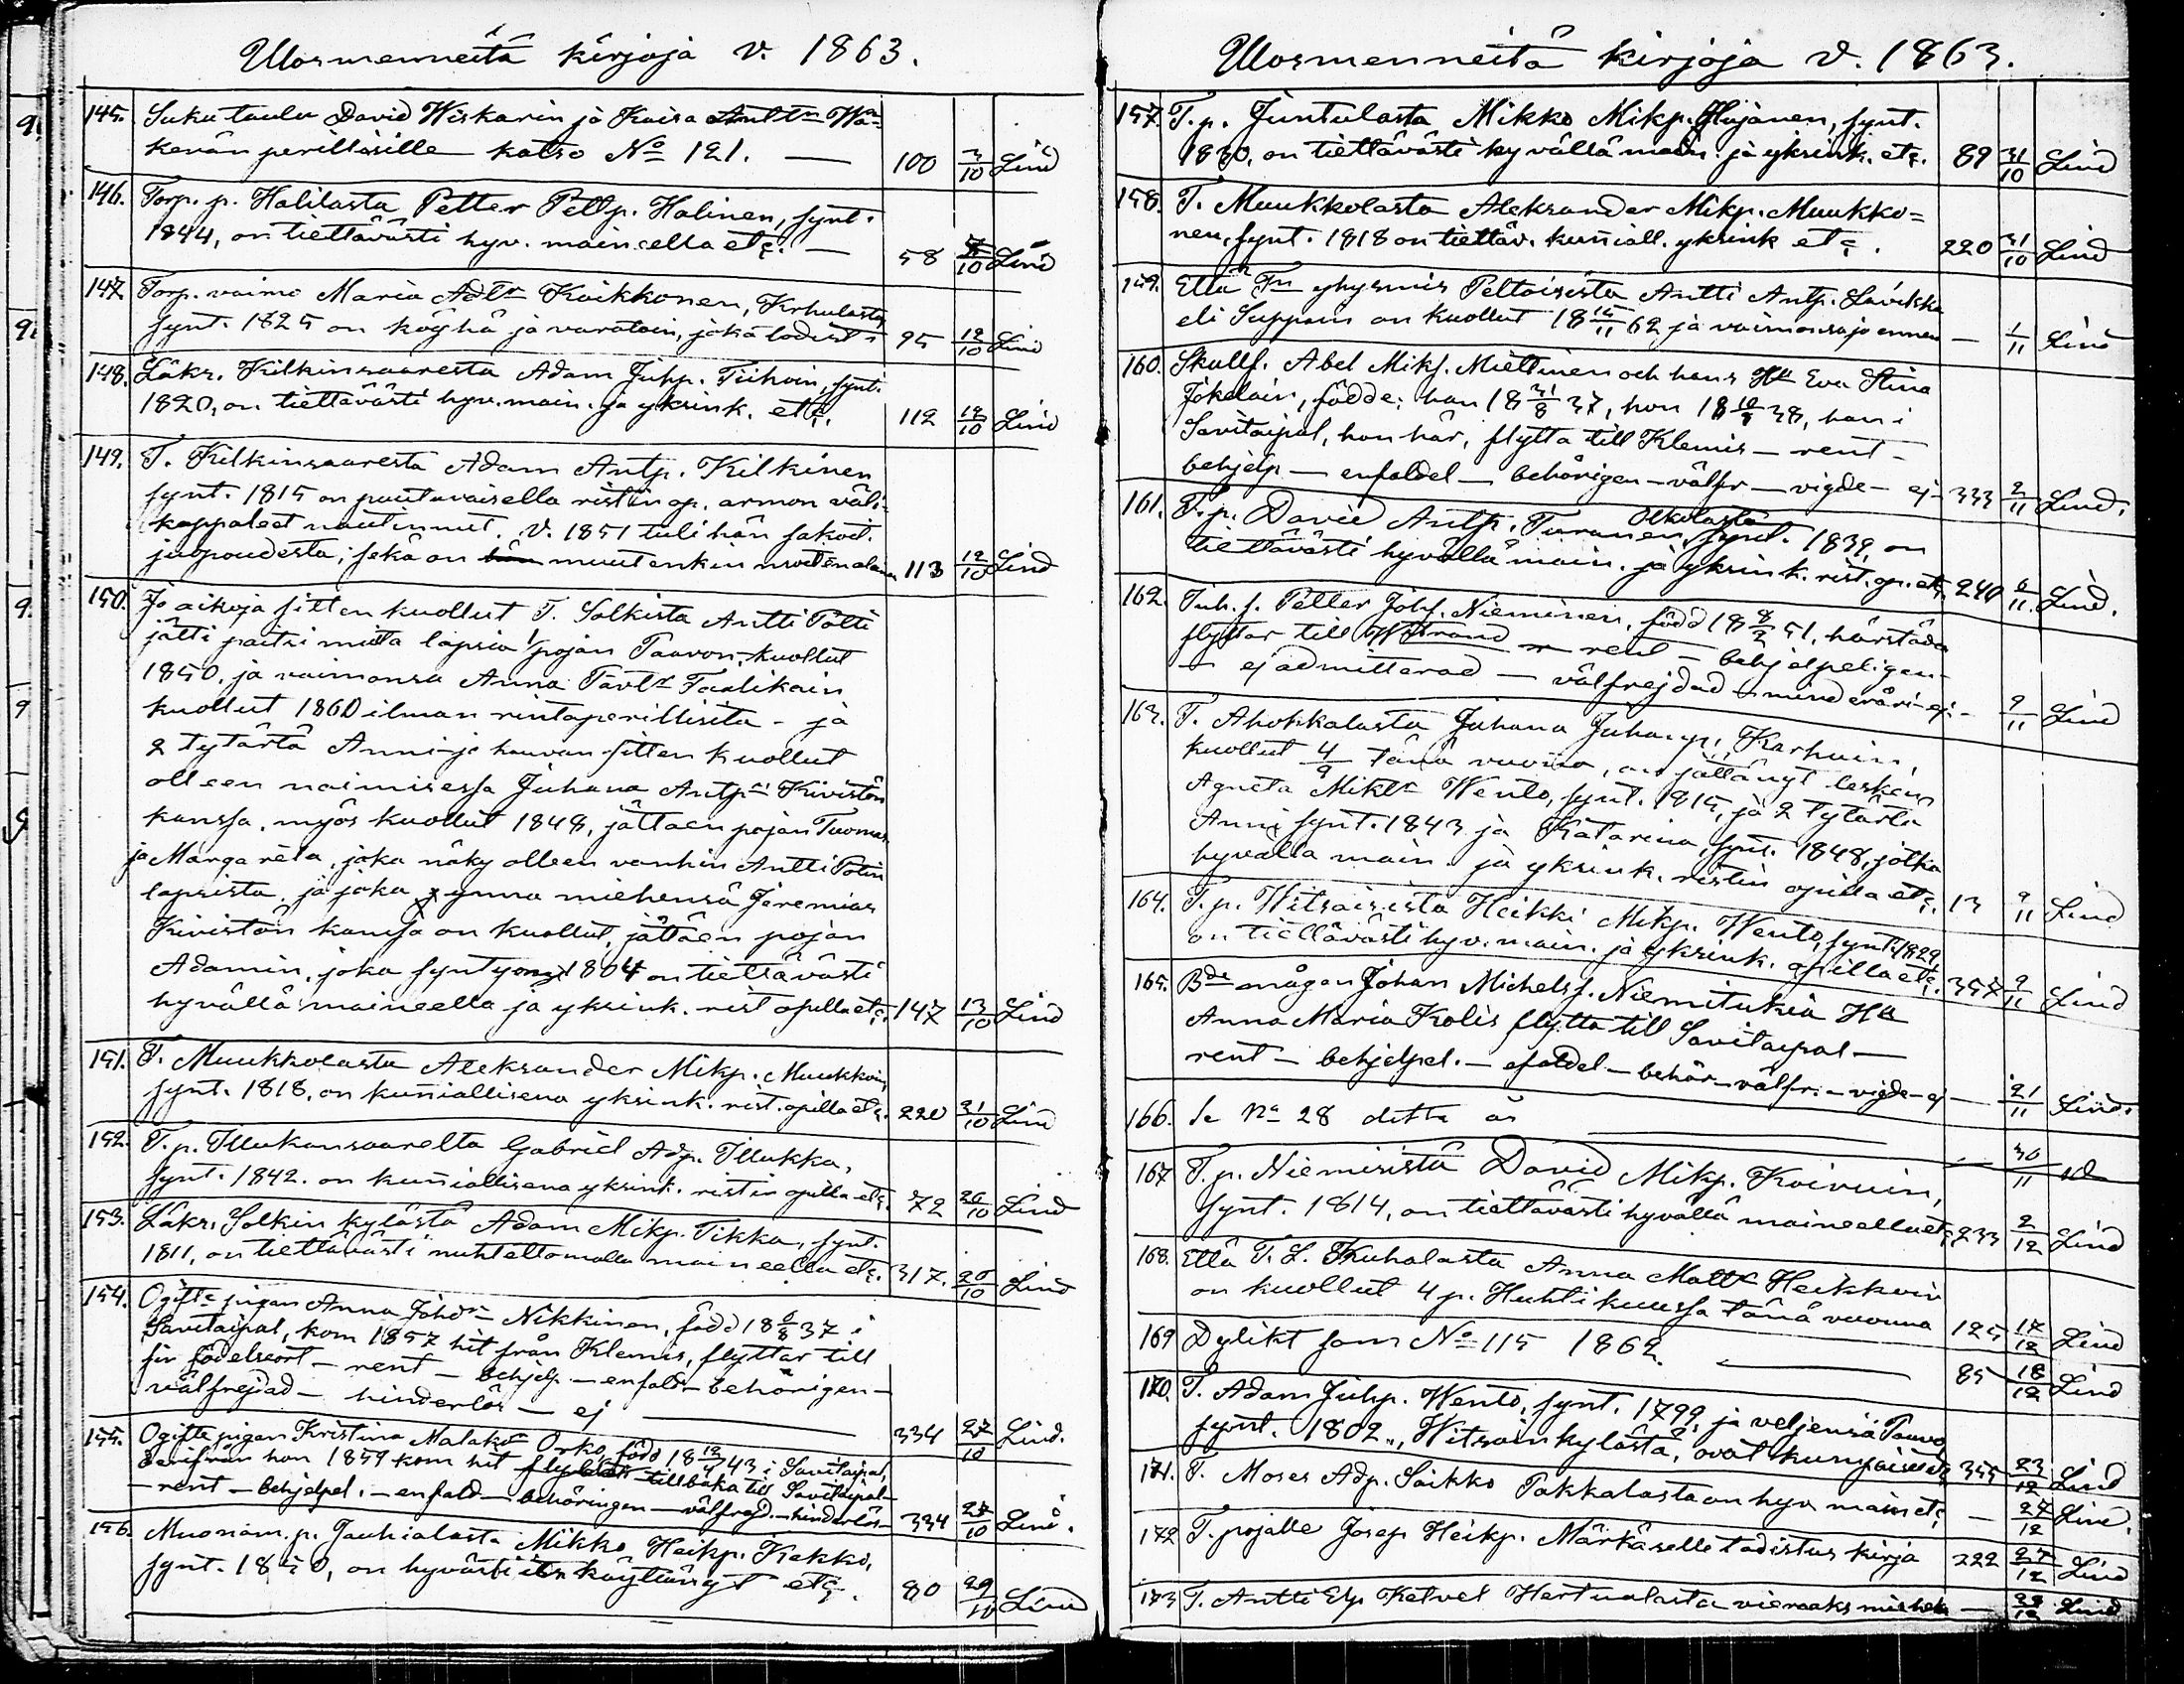 Ulosmenneitä kirjoja v. 1863.
145. Suku taulu David Wiskarin ja Kaisa Anttr Wä=
kevän perillisille katso No 121. — 100 3/10 Lind
146. Torp. p. Halilasta Petter Pettp. Halinen, synt.
1844, on tiettävästi hyv. maineella etc. — 58 /10 Lind
147 Torp. vaimo Maria Adtr Koikkonen, Krhulasta
synt. 1825 on köyhä ja varatoin, joka todist= 95 12/10 Lind
148. Läkr. Kilkinsaaresta Adam Juhp. Tiihoin, synt.
1820, on tiettävästi hyv. main. ja yksink. etc. 112 12/10 Lind
149. T. Kilkinsaaresta Adam Antp. Kilkinen
synt. 1815 on puutuvaisella ristin op. armon väli=
kappaleet nautinnut. V. 1851 tuli hän sakoit.
juopoudesta; sekä on muutenkin 113 12/10 Lind
150. Jo aikoja sitten kuollut T. Solkista Antti Pölli
jätti paitsi muita lapsia 1/ pojan Paavon, kuollut
1850, ja vaimonsa Anna Pavtr Taalikain
kuollut 1860 ilman rintaperillisitä – ja
2 tytärtä Anni – jo kauvan sitten kuollut
olleen naimisessa Juhana Antp:n Kivistön
kanssa, myös kuollut 1848, jättäen pojan Tuomas
ja Margareta, joka näky olleen vanhin Antti Potin
lapsista, ja joka ynnä miehensä Jeremias
Kivistön kanssa on kuollut, jättäen pojan
Adamin, joka syntynyt 1804 on tiettävästi
hyvällä maineella ja yksink. rist opilla etc. 147 13/10 Lind
151. T. Muukkolasta Aleksander Mikp. Muukkoin
synt. 1818, on kuniallisena yksink. rist. opilla etc. 220 21/10 Lind
152. T. p. Illukansaarelta Gabriel Adp. Illukka,
synt. 1842. on kuniallisena yksink. ristin opilla etc. 72 26/10 Lind
153. Läkr. Solkin kylästä Adam Mikp. Tikka, synt.
1811, on tiettävästi nuhtettomalla maineella etc. 317. 26/10 Lind
154. Ogifta pigan Anna Johdr Nikkinen, född 18 6/8 37 i
Savitaipal, kom 1857 hit från Klemis, flyttar till
sin födelseort – rent – behjelp. – enfald – behörigen –
välfrejdad – hinderlös – ej — 334 27/10 Lind.
155. Ogifta pigan Kristina Malakdr Orko, född 18 12/7 43 i Savitaipal,
derifrån hon 1859 kom hit flyttar tillbaka till Savitaipal –
– rent – behjelpel. – enfald – behöringen – välfrejd. – hinderlös – 334 27/10 Lind.
156. Muonam. p. Jauhialasta Mikko Heikp. Kekki,
synt. 1850, on hyvästi its käyttänyt etc. 80 29/10 Lind
Ulosmenneitä kirjoja v. 1863.
157. T. p. Juntulasta Mikko Mikp. Ilujänen, synt.
1830, on tiettävästi hyvällä main. ja yksink. etc. 89 31/10 Lind
158. T. Muukkolasta Aleksander Mikp. Muukko=
nen, synt. 1818 on tiettäv. kuniall. yksink etc. 220 31/10 Lind
159. Että yhysmis Peltoisista Antti Antp. Savikko
eli Suppoin on kuollut 18 14/11 62 ja vaimonsa jo ennen — 1/11 Lind
160. Skallf. Abel Mikf. Miettinen och hans Hu Eva Stina
Jokelain, födde: han 18 31/8 37, hon 18 38, han i
Savitaipal, hon här, flytta till Klemis – rent –
behjelp – enfaldel – behörigen – välfr – vigde – ej – 333 2/11 Lind.
161. T. p. David Antp. Turunen Olkolasta, synt. 1839, on
tiettävästi hyvällä main. ja yksink. rist. op. etc. 240 6/11 Lind.
162. Inh. s. Petter Johs. Nieminen, född 18 8/2 51, härstädes
flyttar till rent – behjelpeligen –
– ej admitterad – välfrejdad – minderårig – ej – 9/11 Lind
163. T. Ahokkalasta Juhana Juhanp. Karhuin,
kuollut 4/9 tänä vuonna, on jättänyt leskens
Agneta Miktr Wento, synt. 1815, ja 2 tytärtä
Anni synt. 1843 ja Katarina, synt. 1848, jotka
hyvällä main. ja yksink. ristin opilla etc. 13 9/11 Lind
164. T. p. Witsaisista Heikki Mikp. Wento, synt. 1829,
on tiettävästi hyv. main. ja yksink. opilla etc. 357 9/11 Lind
165. Bde mågen Johan Michelss. Niemitukia Hu
Anna Maria Kolis flytta till Savitaipal –
rent – behjelpel. – efaldel – behör – välfr. – vigde – ej — 21/11 Lind.
166. Se No 28 detta år — 30/11 id
167 T. p. Niemisistä David Mikp. Koivuin,
synt. 1814, on tiettävästi hyvällä maineella etc 233 2/12 Lind
168. Että T. L. Kuhalasta Anna Mattr Heikkoin
on kuollut 4 p. Huhtikuussa tänä vuonna 125 17/12 Lind
169 Dylikt som No 115 1862. — 85 18/12 Lind
170. T. Adam Juhp. Wento, synt. 1799, ja veljensä Paavo,
synt. 1802, Witsain kylästä, ovat 355 23/12 Lind
171. T. Moses Adp. Saikko Pakkalasta on hyv main etc — 27/12 Lind.
172 T. pojalle Josep Heikp. Märkäselle todistus kirja 222 27/12 Lind
173 T. Antti Ely Ketvel Hertualasta vieraaks mieheks — 28/12 Lind